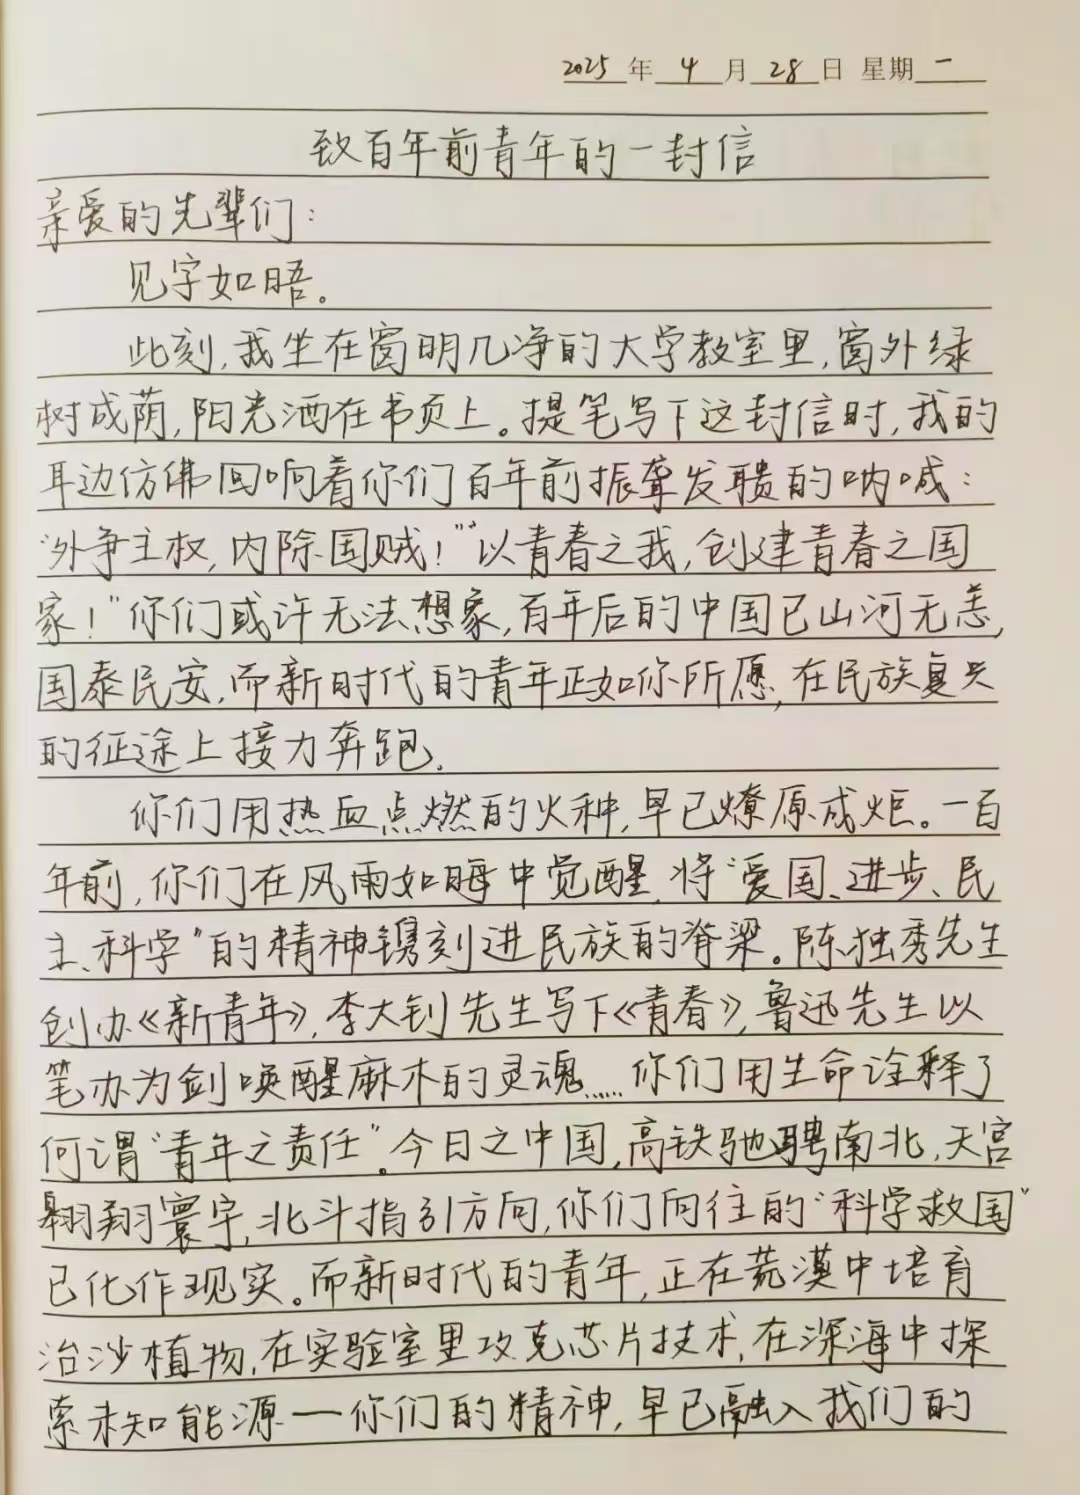 2025年4月28日 星期一
致百年前青年的一封信
亲爱的先辈们:
见字如晤。
此刻,我坐在窗明几净的大学教室里,窗外绿
树成荫,阳光洒在书页上。提笔写下这封信时,我的
耳边仿佛回响着你们百年前振聋发聩的呐喊:
“外争主权,内除国贼!”“以青春之我,创建青春之国
家!”你们或许无法想象,百年后的中国已山河无恙,
国泰民安,而新时代的青年正如你所愿,在民族复兴
的征途上接力奔跑.
你们用热血点燃的火种,早已燎原成炬。一百
年前,你们在风雨如晦中觉醒,将“爱国、进步、民
主、科学”的精神镌刻进民族的脊梁。陈独秀先生
创办《新青年》,李大钊先生写下《青春》,鲁迅先生以
笔办为剑唤醒麻木的灵魂……你们用生命诠释了
何谓“青年之责任”。今日之中国,高铁驰骋南北,天宫
翱翔寰宇,北斗指引方向,你们向往的“科学救国”
已化作现实。而新时代的青年,正在荒漠中培育
治沙植物,在实验室里攻克芯片技术,在深海中探
索未知能源—你们的精神,早已融入我们的